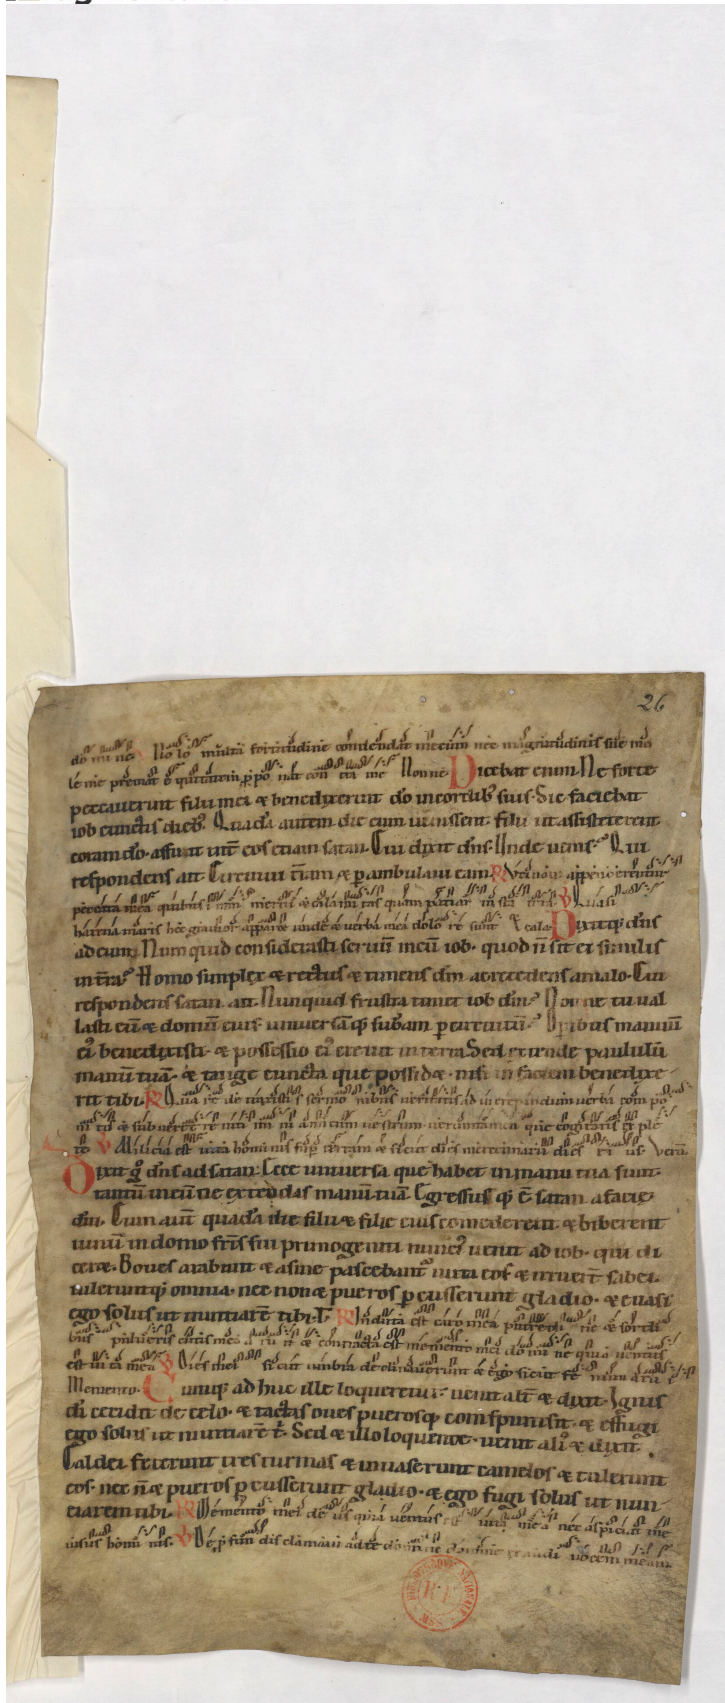 26
do mi ne Nolo multa fortitudine contendat mecum nec magnitudinis sue mo
le me premat equitatem proponat contra me Nonne Dicebat enim. Ne forte
peccauerunt filii mei & benedixerunt do in cordib; suis. Sic faciebat
iob cunctis dieb;. Quadā autem die cum uenissent filii ut assisterent
coram do. affuit int eos etiam satan. Cui dixit dns. Unde uenis? Qui
respondens ait. Circuiui trām & pambulaui eam. R Utinam appenderentur
peccata mea quibus iram merui & calamitas quam patiar in statera V Quasi
harena maris hec grauior apparet unde & uerba mea dolore sunt & cala Dixitq; dns
ad eum. Numquid considerasti seruū meū iob. quod n sit ei similis
in trā? Homo simplex & rectus & timens dm ac recedens a malo. Cui
respondens satan ait. Nunquid frustra timet iob dm? Nonne tu ual
lasti eū & domū eius uniuersāq; substam p circuitū? Opibus manuū
ei benedixisti. & possessio ei creuit in terra. Sed extende paululū
manū tuā. & tange cuncta que possid&. nisi in faciem benedixe
rit tibi. R Quare detraxistis sermonibus ueritatis ad increpandum uerba componi
tis & subuertere nitimini amicum uestrum uerumtamen que cogitatis exple
te V Militia est uita hominis sup terram & sicut dies mercenarii dies ei us Verū
Dixit g dns ad satan. Ecce uniuersa que habet in manu tua sunt
tantū in eū ne extendas manū tuā. Egressusq; ē satan a facie
dni. Cum aut quadā die filii & filie eius comederent & biberent
uinū in domo fris sui primogeniti nunci uenit ad iob. qui di
cer&. Boues arabant & asine pascebant iuxta eos & irruert sabei.
tuleruntq; omnia. nec non & pueros pcusserunt gladio. & euasi
ego solus ut nuntiarē tibi. R Induta est caro mea putredine & sordi
bus pulueris cutis mea aruit & contracta est memento mei domine quia uentus
est uita mea V Dies mei sicut umbra declinauerunt & ego sicut fenum arui
Memento. Cumq; adhuc ille loqueretur. uenit alt & dixit. Ignis
di cecidit de celo. & tactas oues puerosq; comsumpsit. & effugi
ego solus ut nuntiarē t. Sed & illo loquente. uenit ali & dixit.
Caldei fecerunt tres turmas & inuaserunt camelos & tulerunt
eos. nec n & pueros pcusserunt gladio. & ego fugi solus ut nun
ciarem tibi. R Memento mei deus quia uentus est uita mea nec aspiciat me
uisus hominis. V De pfundis clamaui ad te domine domine exaudi uocem meam